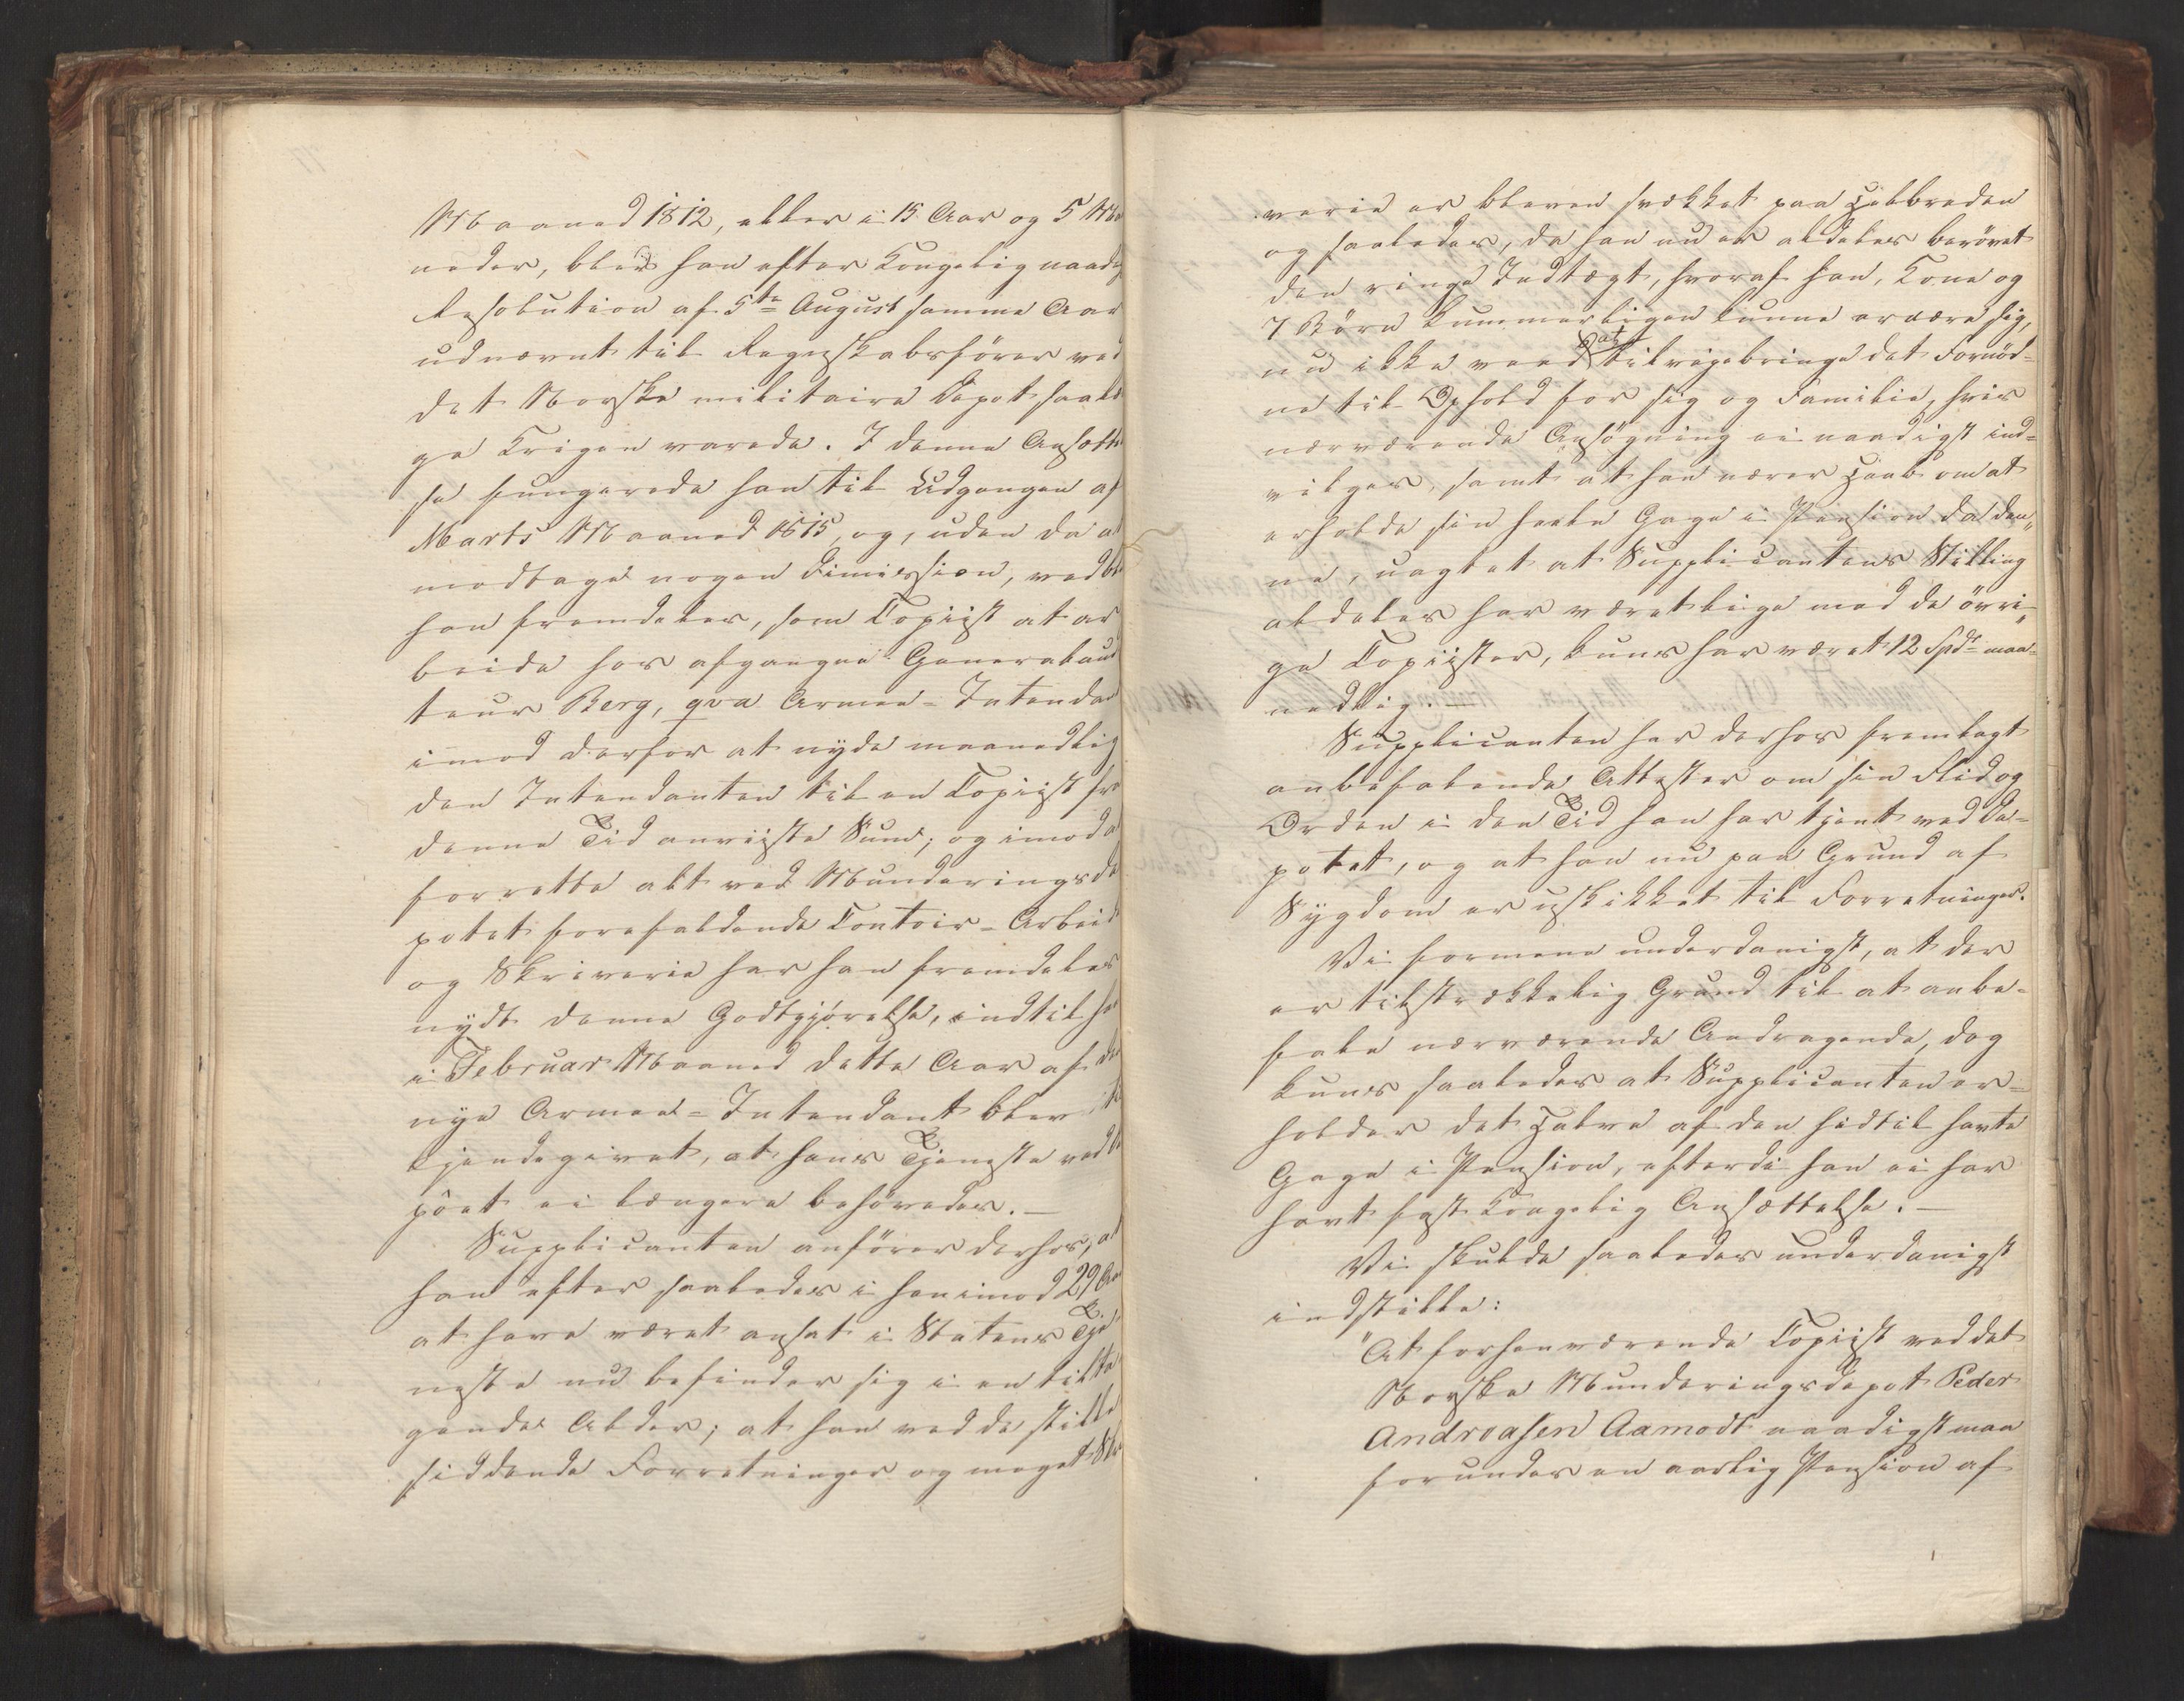 Maaned 1812, eller i 15 Aar og 5 Maa
neder, blev han efter Kongelig naadig
Resolution af 5te August samme Aar
udnævnt til Regnskabsfører ved
det Norske militaire Depot saalæ
ge Krigen varede. I denne Ansætt
se fungerede han til Udgangen af
Marts Maaned 1815, og, uden da at
modtage nogen Dimission, vedble
han fremdeles, som Copiist at ar
beide hos afgangne Generalaudi
teur Berg, qva Armee-Intendant
imod derfor at nyde maanedlig
den Intendanten til en Copiist fra
denne Tid anviiste Sum; og imod at
forrette alt ved Munderingsde
potet forefaldende Contoir-Arbeide
og Skriverie har han fremdeles
nydt denne Godtgjørelse, indtil han
i Februar Maaned dette Aar af den
nye Armee-Intendant blev til
kjendegivet, at hans Tjeneste ved De
pôet ei længere behøvedes. —
Supplicanten anfører derhos, at
han efter saaledes i henimod 29 Aar
at have været ansat i Statens Tje
neste nu befinder sig i en tilta
gende Alder; at han ved de stille
siddende Forretninger og meget Skri
verie er bleven svækket paa Helbreden
og saaledes, da han nu er aldeles berøvet
den ringe Indtægt, hvoraf han, Kone og
7 Børn kummerligen kunne ernære sig,
nu ikke veed at tilveiebringe det Fornød-
ne til Ophold for sig og Familie, hvis
nærværende Ansøgning ei naadigst ind-
vilges, samt at han nærer Haab om at
erholde sin heele Gage i Pension da den„
ne, uagtet at Supplicantens Stilling
aldeles har været liige med de øvri„
ge Copiister, kuns har været 12 Spd. maa-
nedlig. —
Supplicanten har derhos fremlagt
anbefalende Attester om sin Flid og
Orden i den Tid han har tjent ved De-
potet, og at han nu paa Grund af
Sygdom er uskikket til Forretninger.
Vi formene underdanigst, at der
er tilstrækkelig Grund til at anbe-
fale nærværende Andragende, dog
kuns saaledes at Supplicanten er-
holder det Halve af den hidtil havte
Gage i Pension, efterdi han ei har
havt fast Kongelig Ansættelse. —
Vi skulde saaledes underdanigst
indstille:
"At forhenværende Copiist ved det
Norske Munderingsdepot Peder
Andreasen Aamodt naadigst maa
forundes en aarlig Pension af